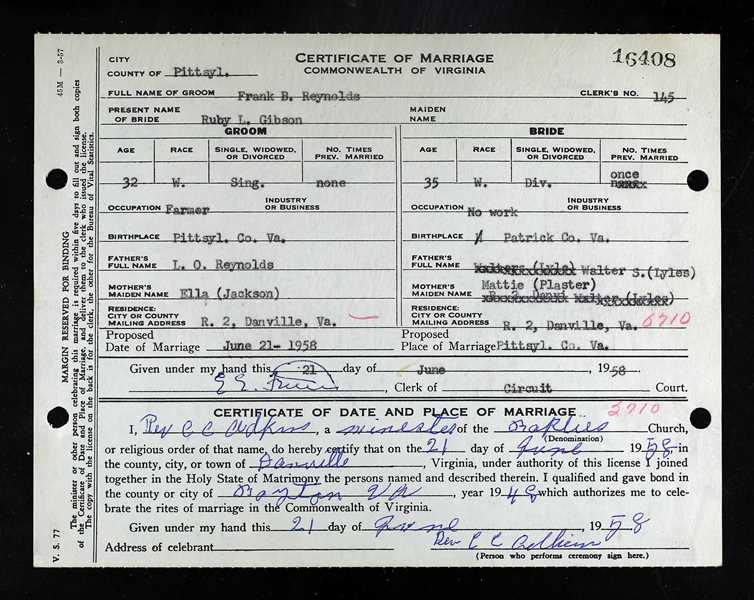 CITY
COUNTY OF Pittsyl.
CERTIFICATE OF MARRIAGE
COMMONWEALTH OF VIRGINIA
16408
FULL NAME OF GROOM Frank B. Reynolds CLERK'S NO. 145
PRESENT NAME OF BRIDE Ruby L. Gibson MAIDEN NAME
GROOM BRIDE
AGE RACE SINGLE, WIDOWED, OR DIVORCED NO. TIMES PREV. MARRIED AGE RACE SINGLE, WIDOWED, OR DIVORCED NO. TIMES PREV. MARRIED
32 W. Sing. none 35 W. Div. once
OCCUPATION Farmer INDUSTRY OR BUSINESS OCCUPATION No work INDUSTRY OR BUSINESS
BIRTHPLACE Pittsyl. Co. Va. BIRTHPLACE Patrick Co. Va.
FATHER'S FULL NAME L. O. Reynolds FATHER'S FULL NAME Walter S.(Lyles)
MOTHER'S MAIDEN NAME Ella (Jackson) MOTHER'S MAIDEN NAME Mattie (Plaster)
RESIDENCE: CITY OR COUNTY MAILING ADDRESS R. 2, Danville, Va. RESIDENCE: CITY OR COUNTY MAILING ADDRESS R. 2, Danville, Va. 6710
Proposed Date of Marriage June 21- 1958 Proposed Place of Marriage Pittsyl. Co. Va.
Given under my hand this 21 day of June , 1958
, Clerk of Circuit Court.
CERTIFICATE OF DATE AND PLACE OF MARRIAGE 2710
I, Rev C C Adkins , a minester of the Bapties Church,
(Denomination)
or religious order of that name, do hereby certify that on the 21 day of June 1958 in
the county, city, or town of Danville , Virginia, under authority of this license I joined
together in the Holy State of Matrimony the persons named and described therein. I qualified and gave bond in
the county or city of VA , year 1948 which authorizes me to cele-
brate the rites of marriage in the Commonwealth of Virginia.
Given under my hand this 21 day of June , 1958
Address of celebrant Rev C C Adkins
(Person who performs ceremony sign here.)
45M — 3-57
MARGIN RESERVED FOR BINDING
The minister or other person celebrating this marriage is required within five days to fill out and sign both copies
of the Certificate of Date and Place of Marriage, and deliver them to the clerk who issued the license.
The copy with the license on the back is for the clerk, the other for the Bureau of Vital Statistics.
V. S. 77